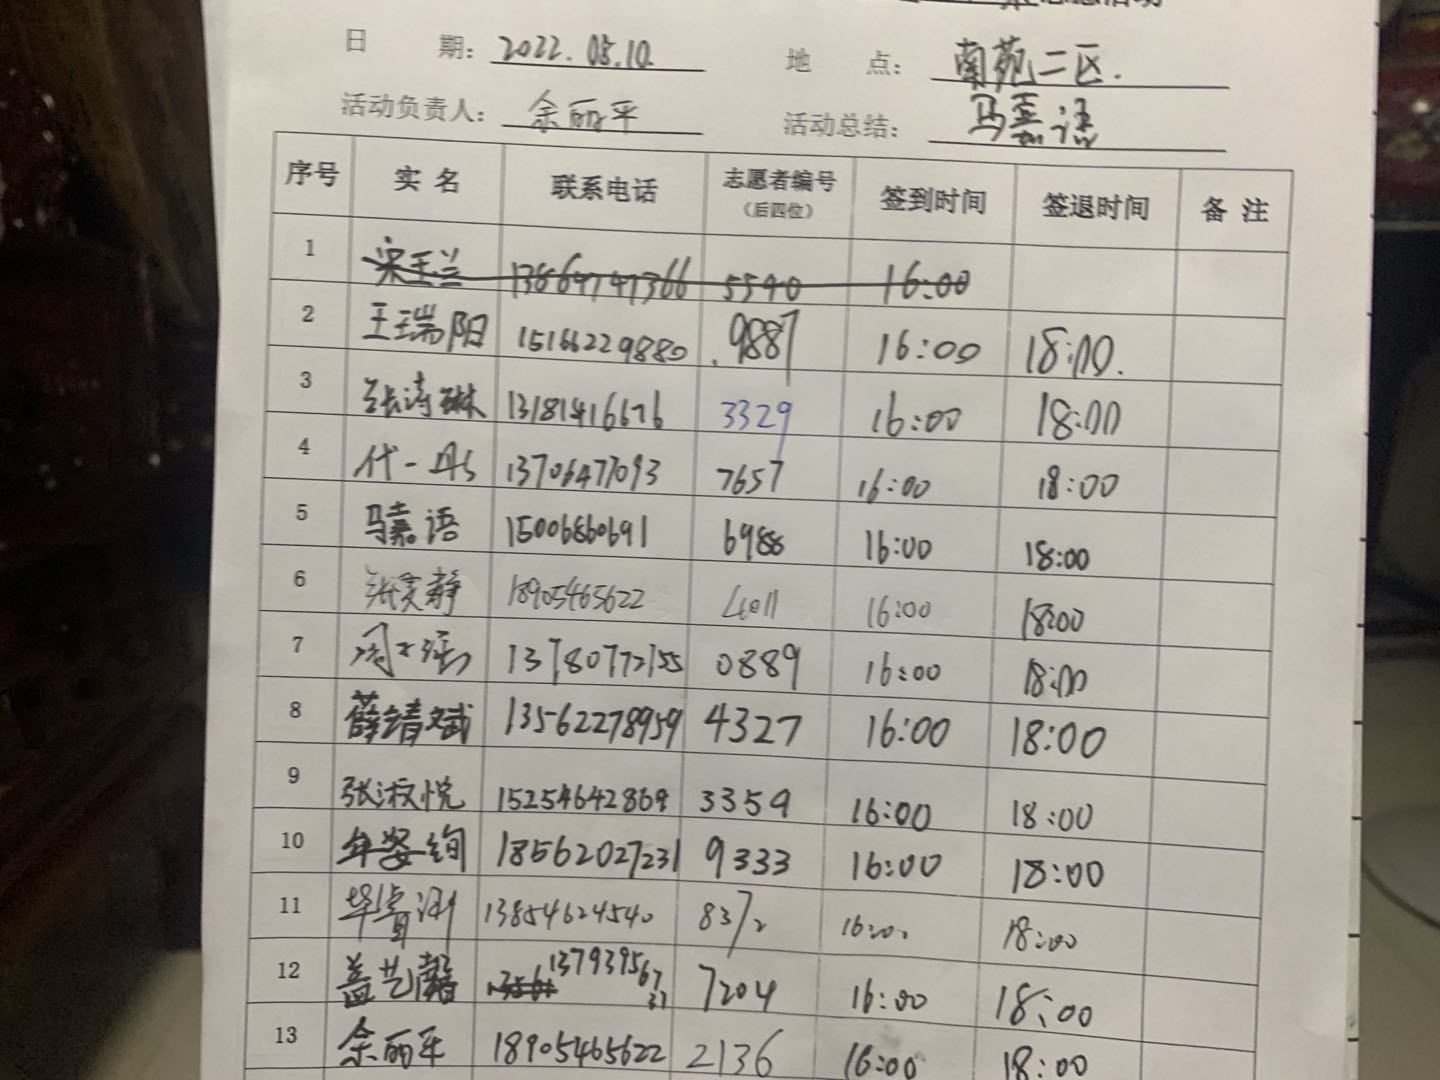 日 期: 2022.05.10. 地 点: 南苑二区.
活动负责人: 余丽平 活动总结: 马嘉语
序号 实名 联系电话 志愿者编号(后四位) 签到时间 签退时间 备注
1 梁玉兰 13864747366 5540 16:00
2 王瑞阳 15166229880 .9887 16:00 18:00.
3 张涛琳 13181416676 3329 16:00 18:00
4 代一丹 13706477093 7657 16:00 18:00
5 马嘉语 15006860691 6988 16:00 18:00
6 静 18905465622 4011 16:00 18:00
7 13780772155 0889 16:00 18:00
8 薛靖斌 13562278959 4327 16:00 18:00
9 张淑悦 15254642869 3359 16:00 18:00
10 年姿绚 18562027231 9333 16:00 18:00
11 13854624540 8372 16:00 18:00
12 盖艺馨 13793956731 7204 16:00 18:00
13 余丽平 18905465622 2136 16:00 18:00